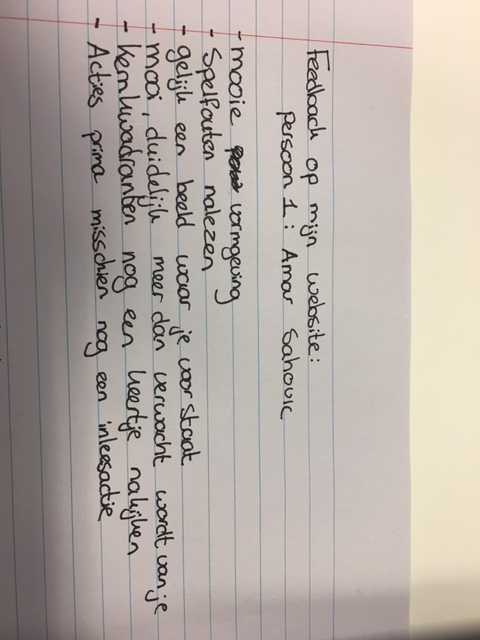 Feedback op mijn website:
persoon 1: Amar Sahovic
- mooie vormgeving
- Spelfouten nalezen
- gelijk een beeld waar je voor staat
- mooi, duidelijk meer dan verwacht wordt van je
- kernkwadranten nog een keertje nakijken
- Acties prima misschien nog een inleesactie